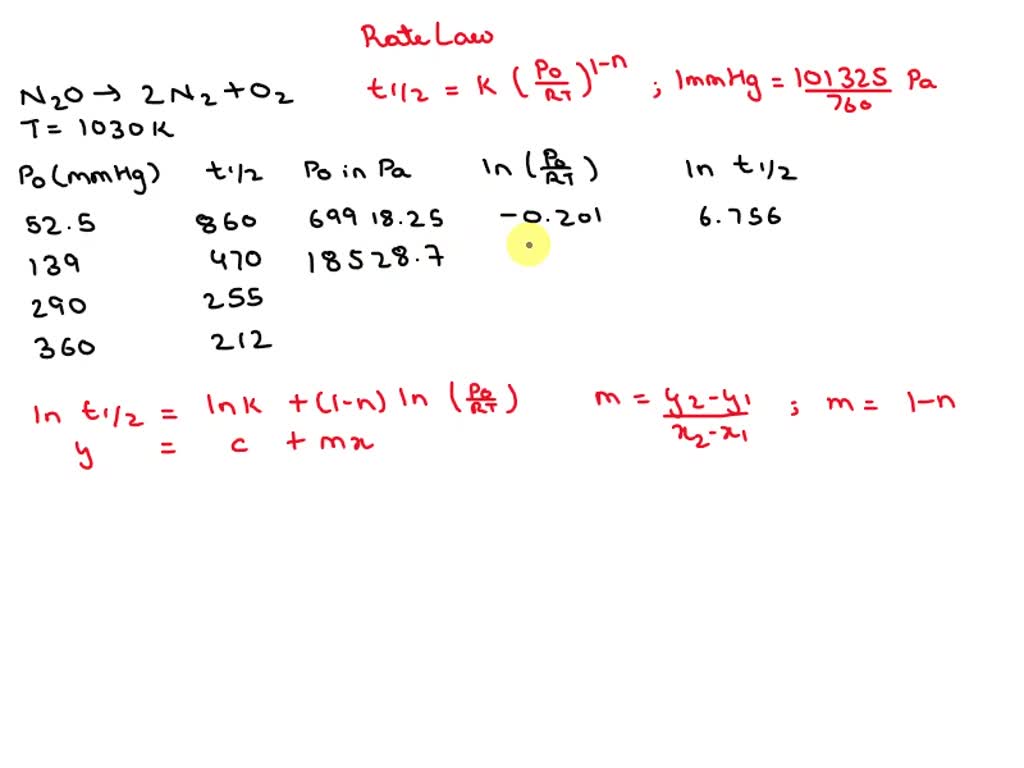 Rate Law
N2O → 2N2 + O2
t1/2 = K (P0/RT)^1-n ; 1mmHg = 101325/760 Pa
T = 1030K
P0 (mmHg) t1/2 P0 in Pa ln (P0/RT) ln t1/2
52.5 860 69918.25 -0.201 6.756
139 470 18528.7
290 255
360 212
ln t1/2 = lnK + (1-n) ln (P0/RT) m = y2-y1/x2-x1 ; m = 1-n
y = c + mx